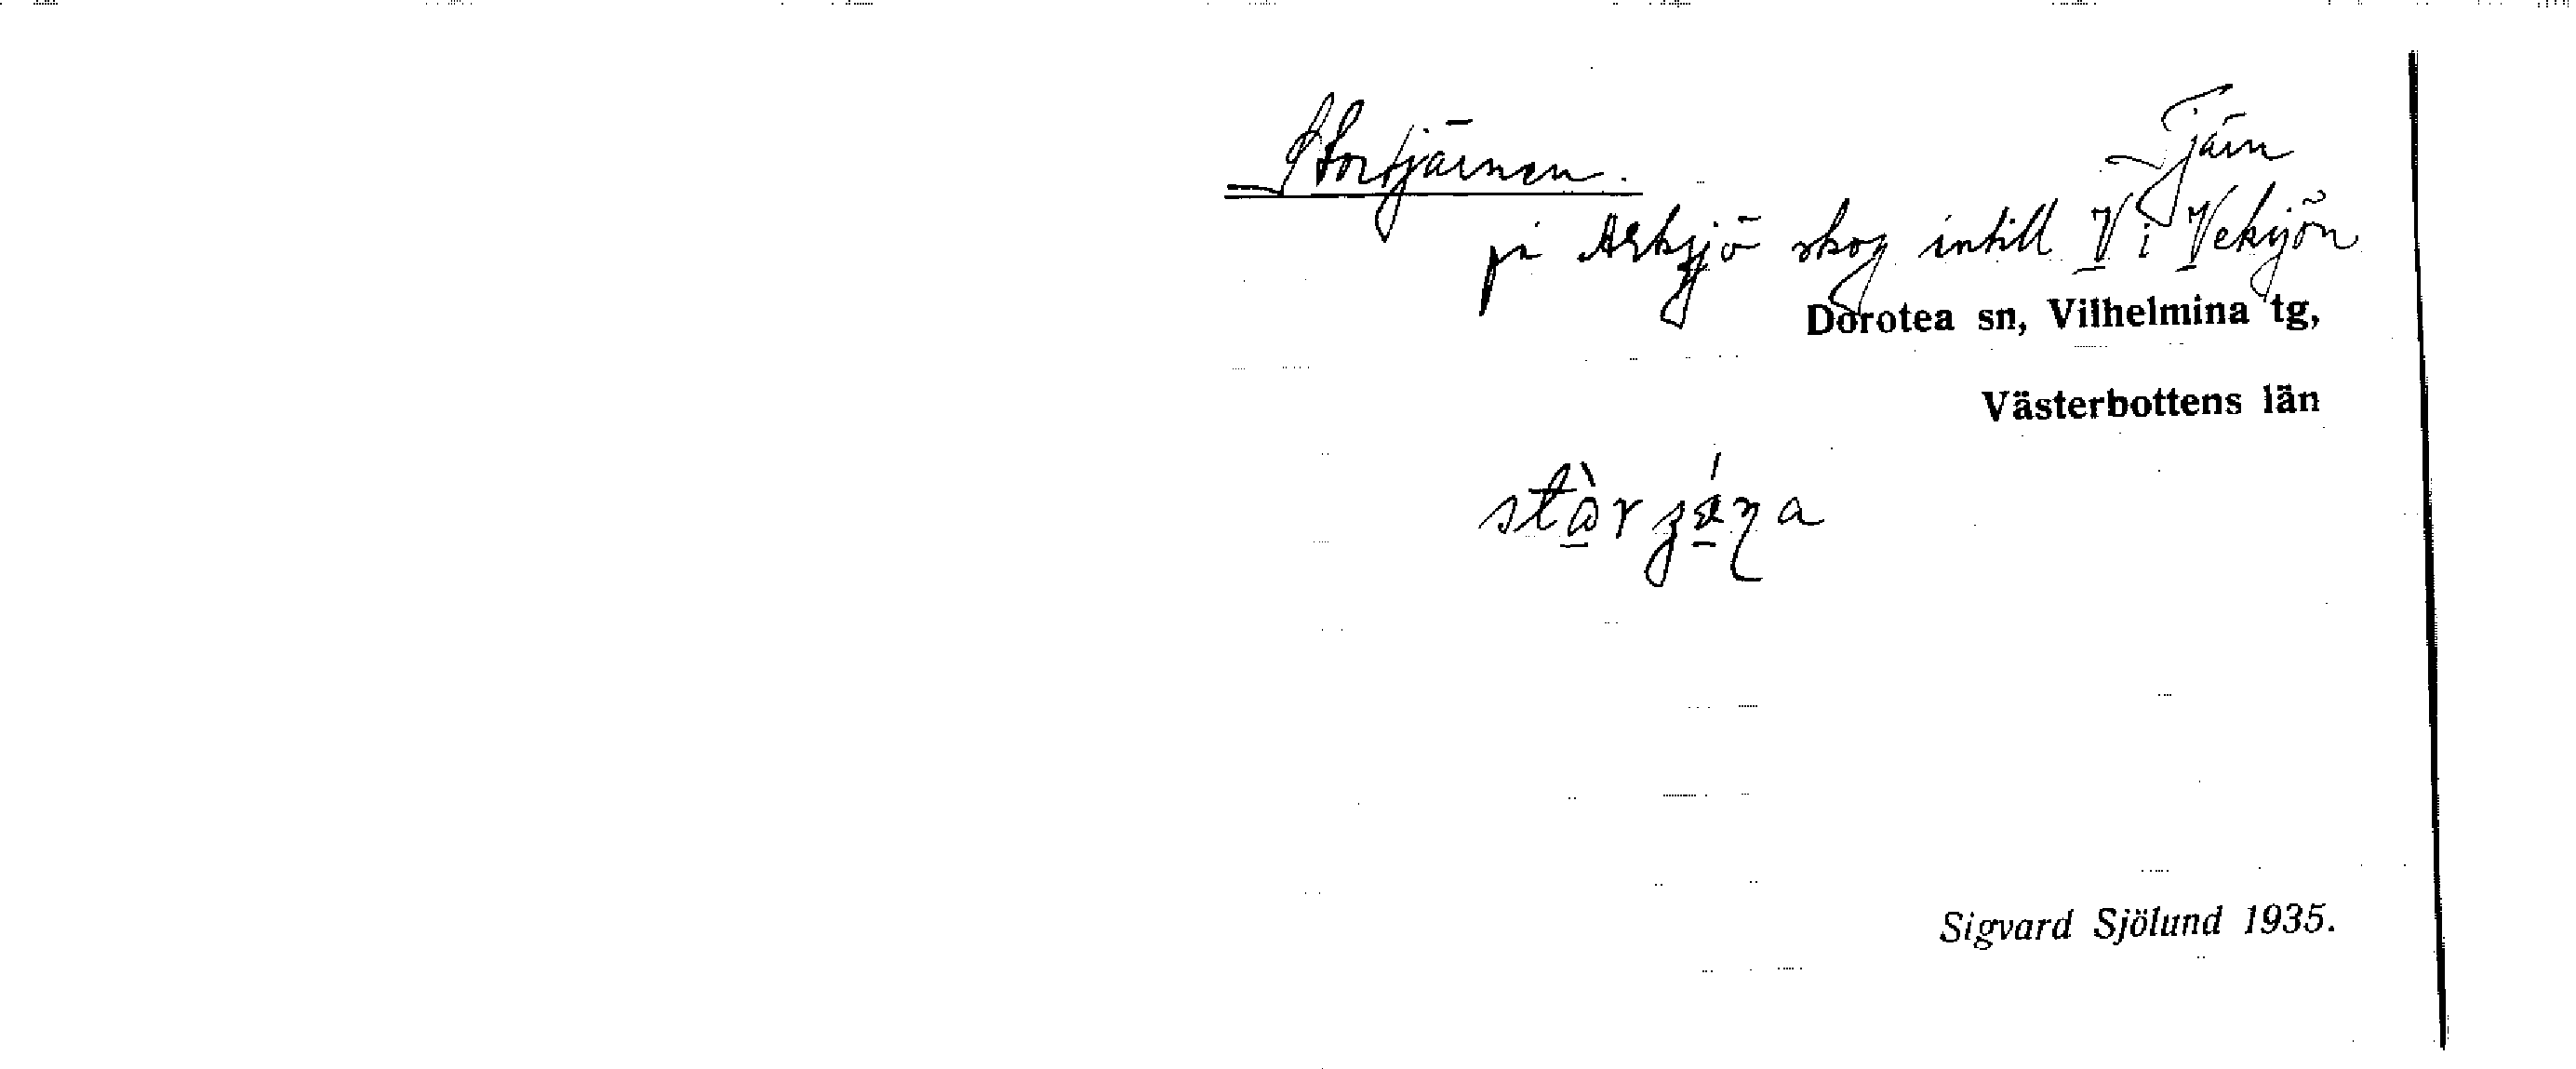 Stortjärnen.
Tjärn
på Arksjö skog intill V i Veksjön
Dorotea sn, Vilhelmina tg,
Västerbottens län
Sigvard Sjölund 1935.